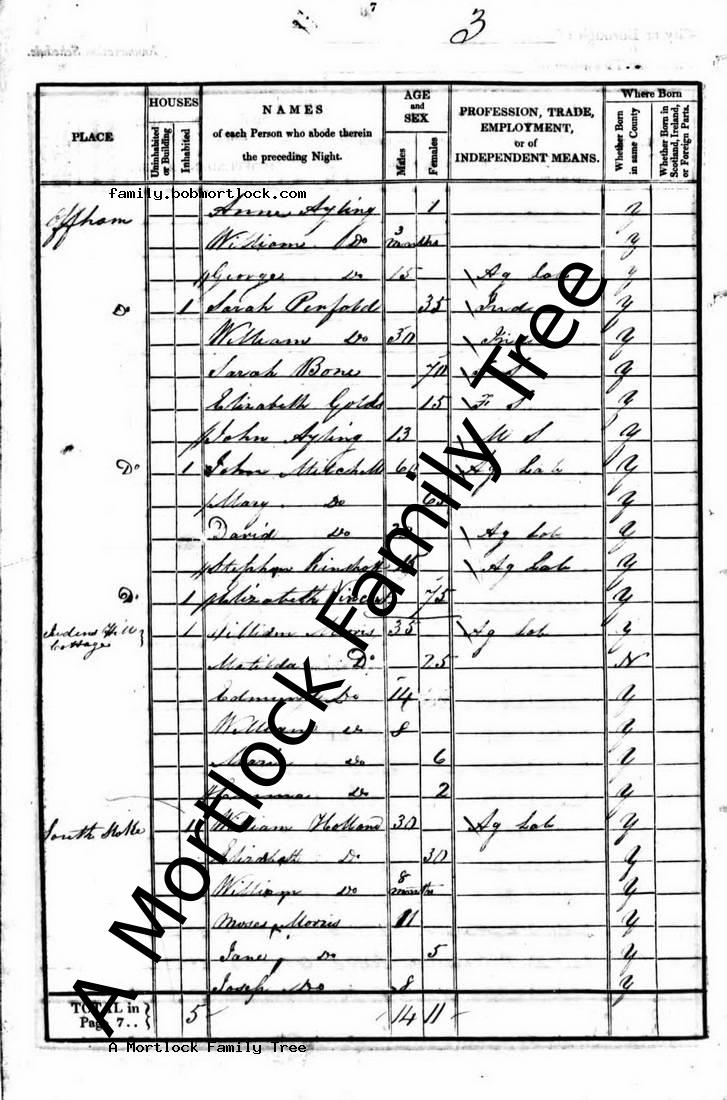 7
3
City or Borough of
Enumeration Schedule.
PLACE
HOUSES
Uninhabited or Building
Inhabited
NAMES
of each Person who abode therein
the preceding Night.
AGE
and
SEX
Males
Females
PROFESSION, TRADE,
EMPLOYMENT,
or of
INDEPENDENT MEANS.
Where Born
Whether Born in same County
Whether Born in Scotland, Ireland, or Foreign Parts.
family.bobmortlock.com
Offham Anne Ayling 1 y
William Do 3 months y
George Do 15 Ag Lab y
Do 1 Sarah Penfold 35 Ind y
William Do 30 Ind y
Sarah Bone 70 F S y
Elizabeth Golds 15 F S y
John Ayling 13 M S y
Do 1 John Mitchell 60 Ag Lab y
Mary Do 65 y
David Do Ag Lab y
Stephen 15 Ag Lab y
Do 1 Elizabeth 75 y
Cottage 1 William Morris 35 Ag Lab y
Matilda Do 25 N
Edmund Do 14 y
William Do 8 y
Maria Do 6 y
Do 2 y
South Stoke 1 William Holland 30 Ag Lab y
Elizabeth Do 30 y
William Do 8 months y
Moses Morris 11 y
Jane Do 5 y
Joseph Do 8 y
TOTAL in
Page 7.. 5 14 11
A Mortlock Family Tree
A Mortlock Family Tree